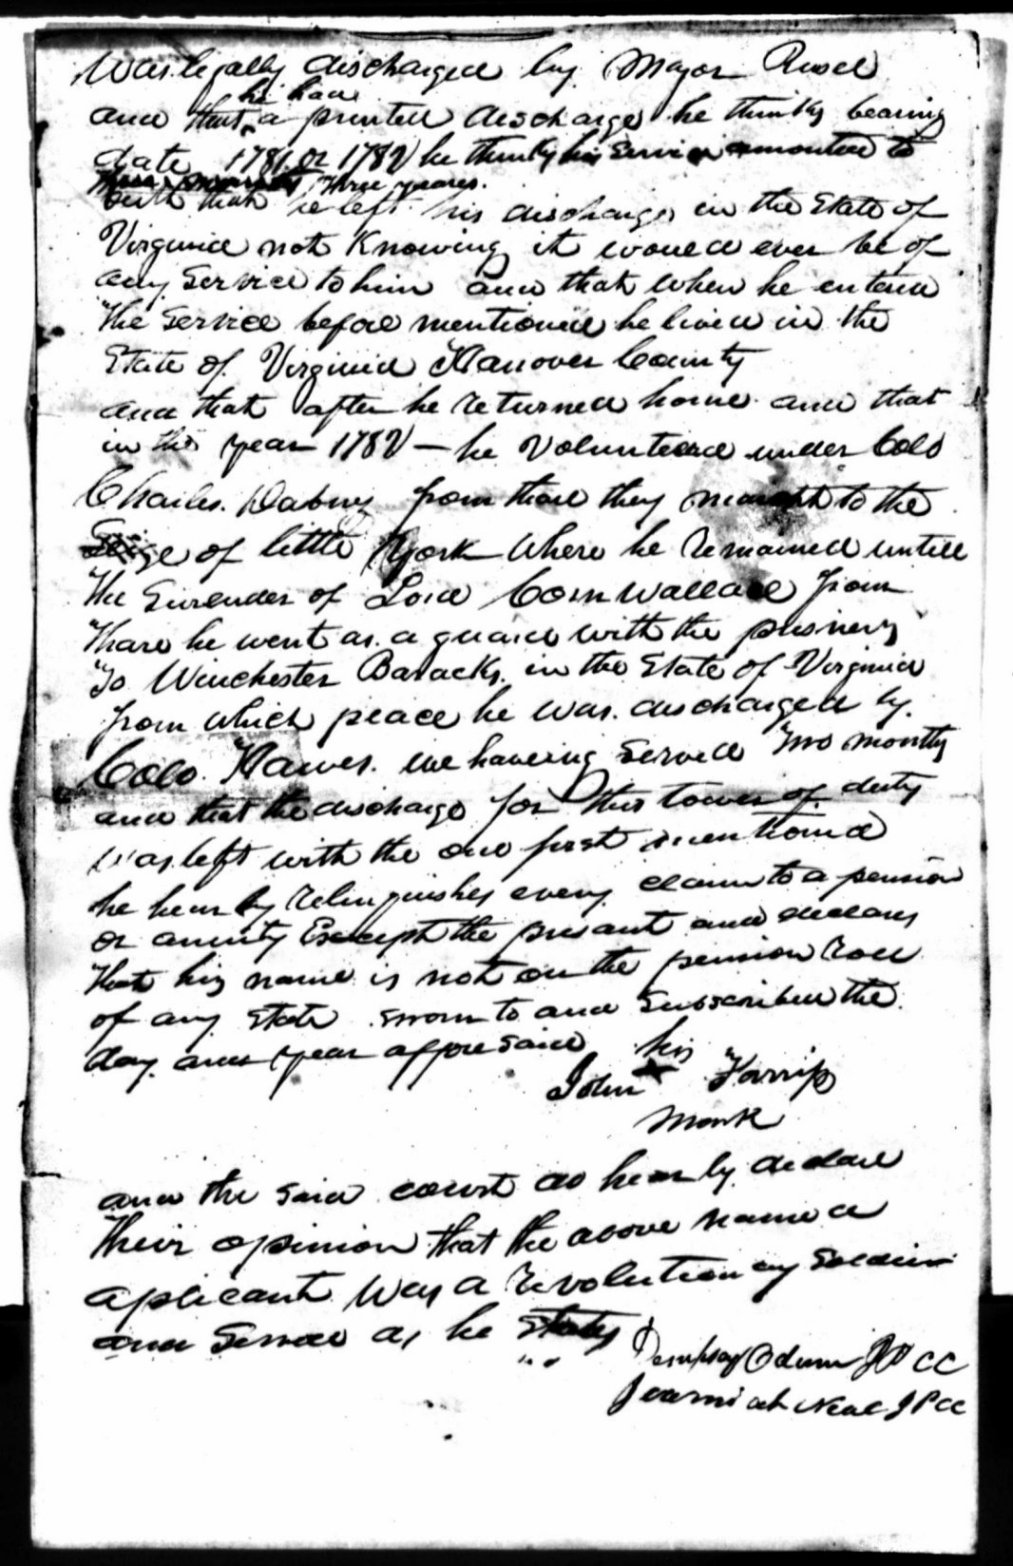 Was legally discharged by Major
he had
and that a printed discharge he thinks bearing
date 1781 or 1782 he thinks his Service amounted to
three years.
that he left his discharge in the State of
Virginia not Knowing it would ever be of
any Service to him and that when he enterd
the Service before mentioned he lived in the
State of Virginia Hanover County
and that after he returned home and that
in the year 1782 — he Volunteered under Colo
Charles Dabney from thare they to the
Seige of little york Where he remained untill
the Surender of Lord Corn Wallace from
thare he went as a guard with the prisners
To Winchester Baracks in the State of Virginia
from which peace he was discharged by
Colo Hawes. we haveing Served two months
and that the discharge for this tower of duty
was left with the one first mentiond
he hearby relinquishes every claim to a pension
or anuity Except the presant and declares
that his name is not on the pension roll
of any State sworn to and Subscribed the
day and year afforesaid his
John x
mark
and the said court do hearby declare
their opinion that the above named
aplicant Was a revolutionary Soldier
and Served as he States
Dempsey Odum JP CC
Jearmiah Neal JPCC